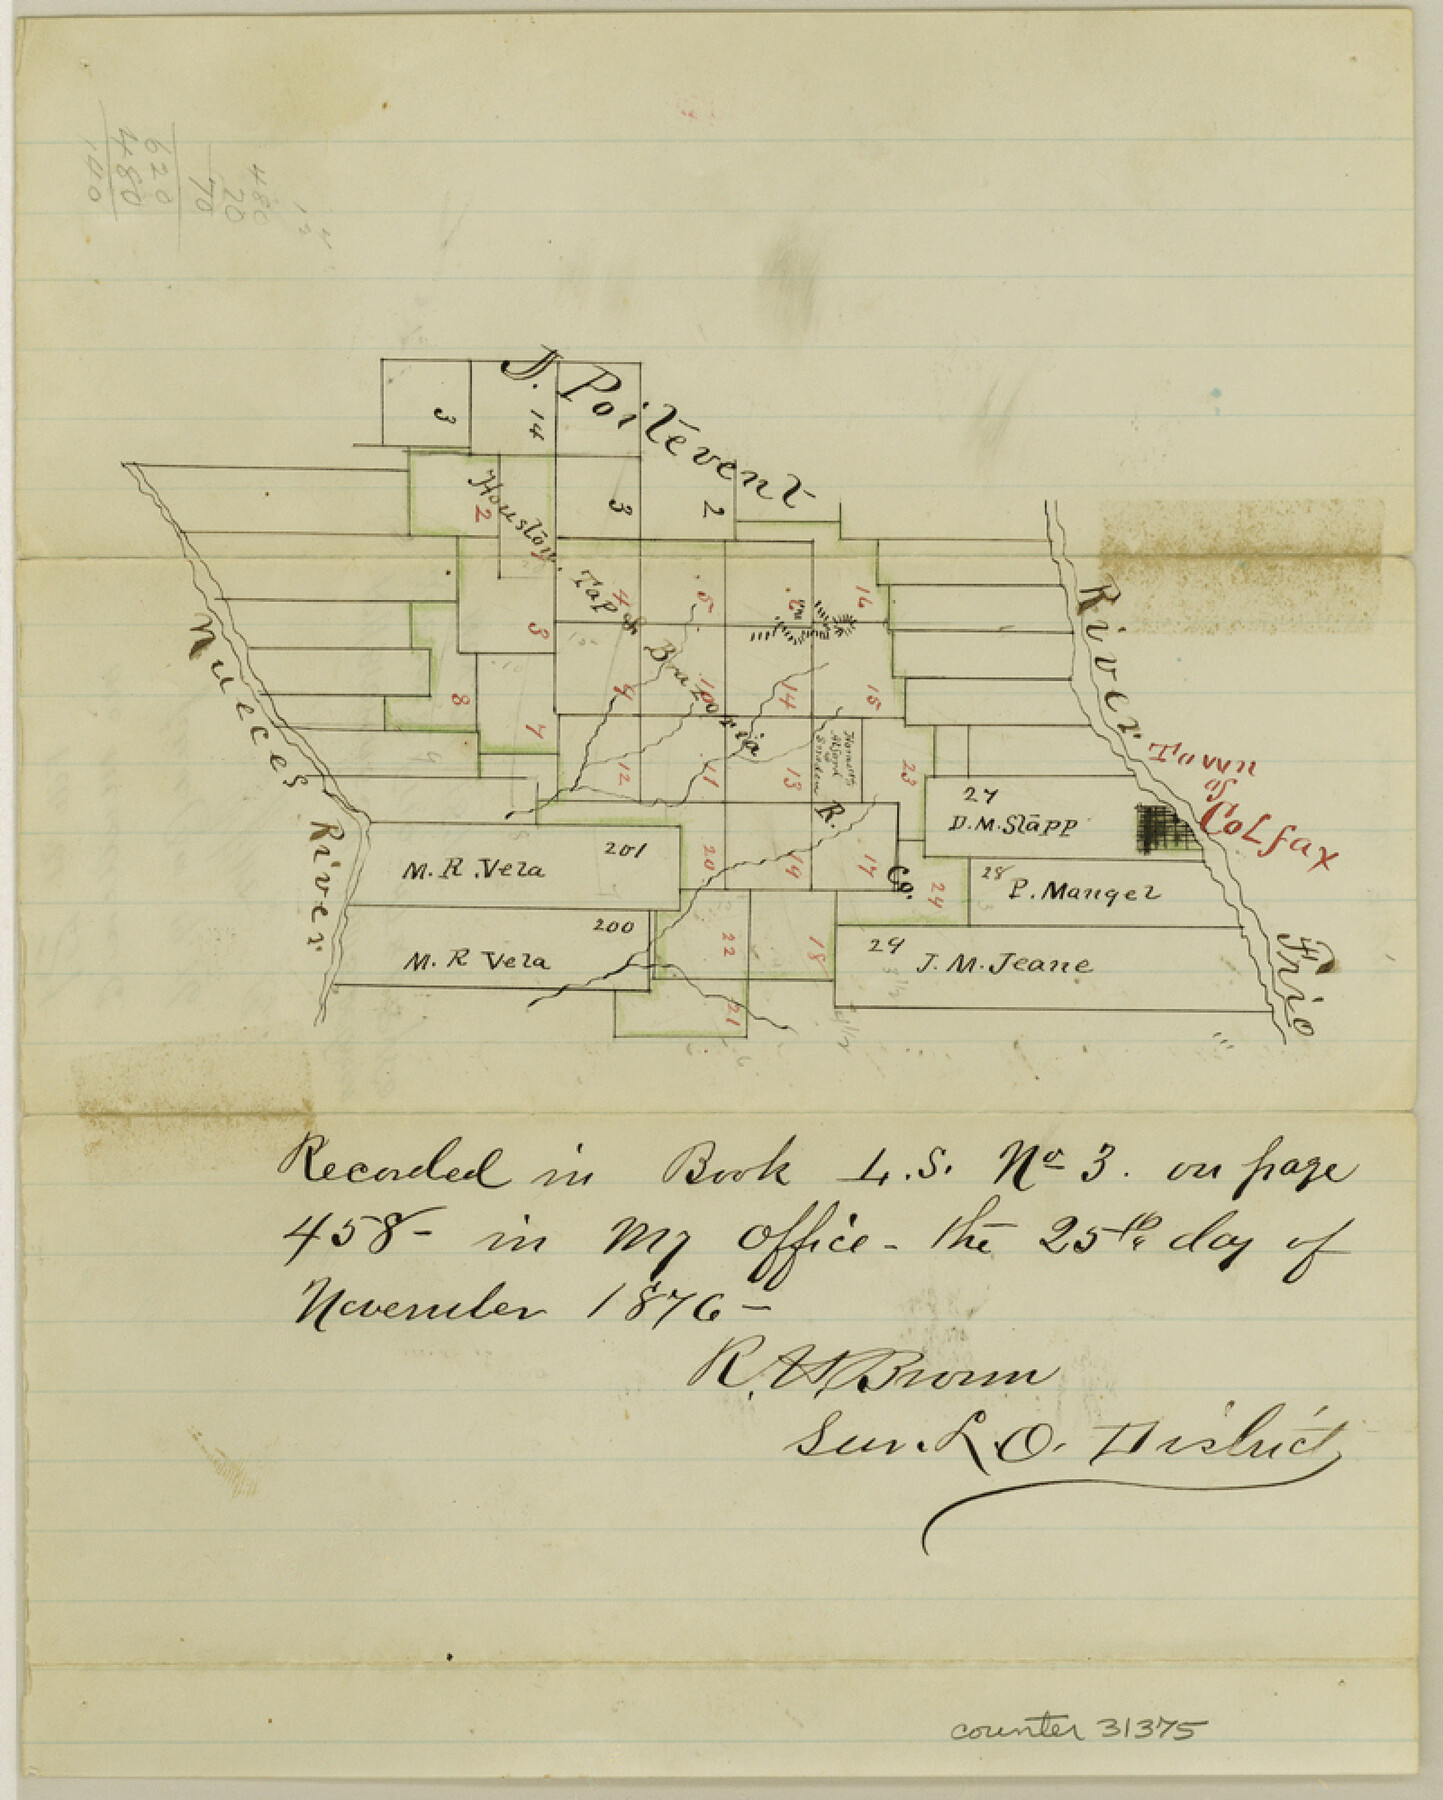 J. Poitevent
3
14
3
2
Houston Tap & Brazoria R. Co.
2
1
4
5
16
3
8
7
9
10
14
15
12
11
13
23
20
19
17
24
22
18
21
Nueces River
River Frio
Town
of
Colfax
27
D. M. Slapp
28
P. Manger
29
J. M. Jeane
M. R. Vera 201
200
M. R Vera
Recorded in Book L. S. No 3. on page
458– in my office – the 25th day of
November 1876 –
R. W. Brown
Sur. L. O. District
counter 31375
480
20
70
620
480
140